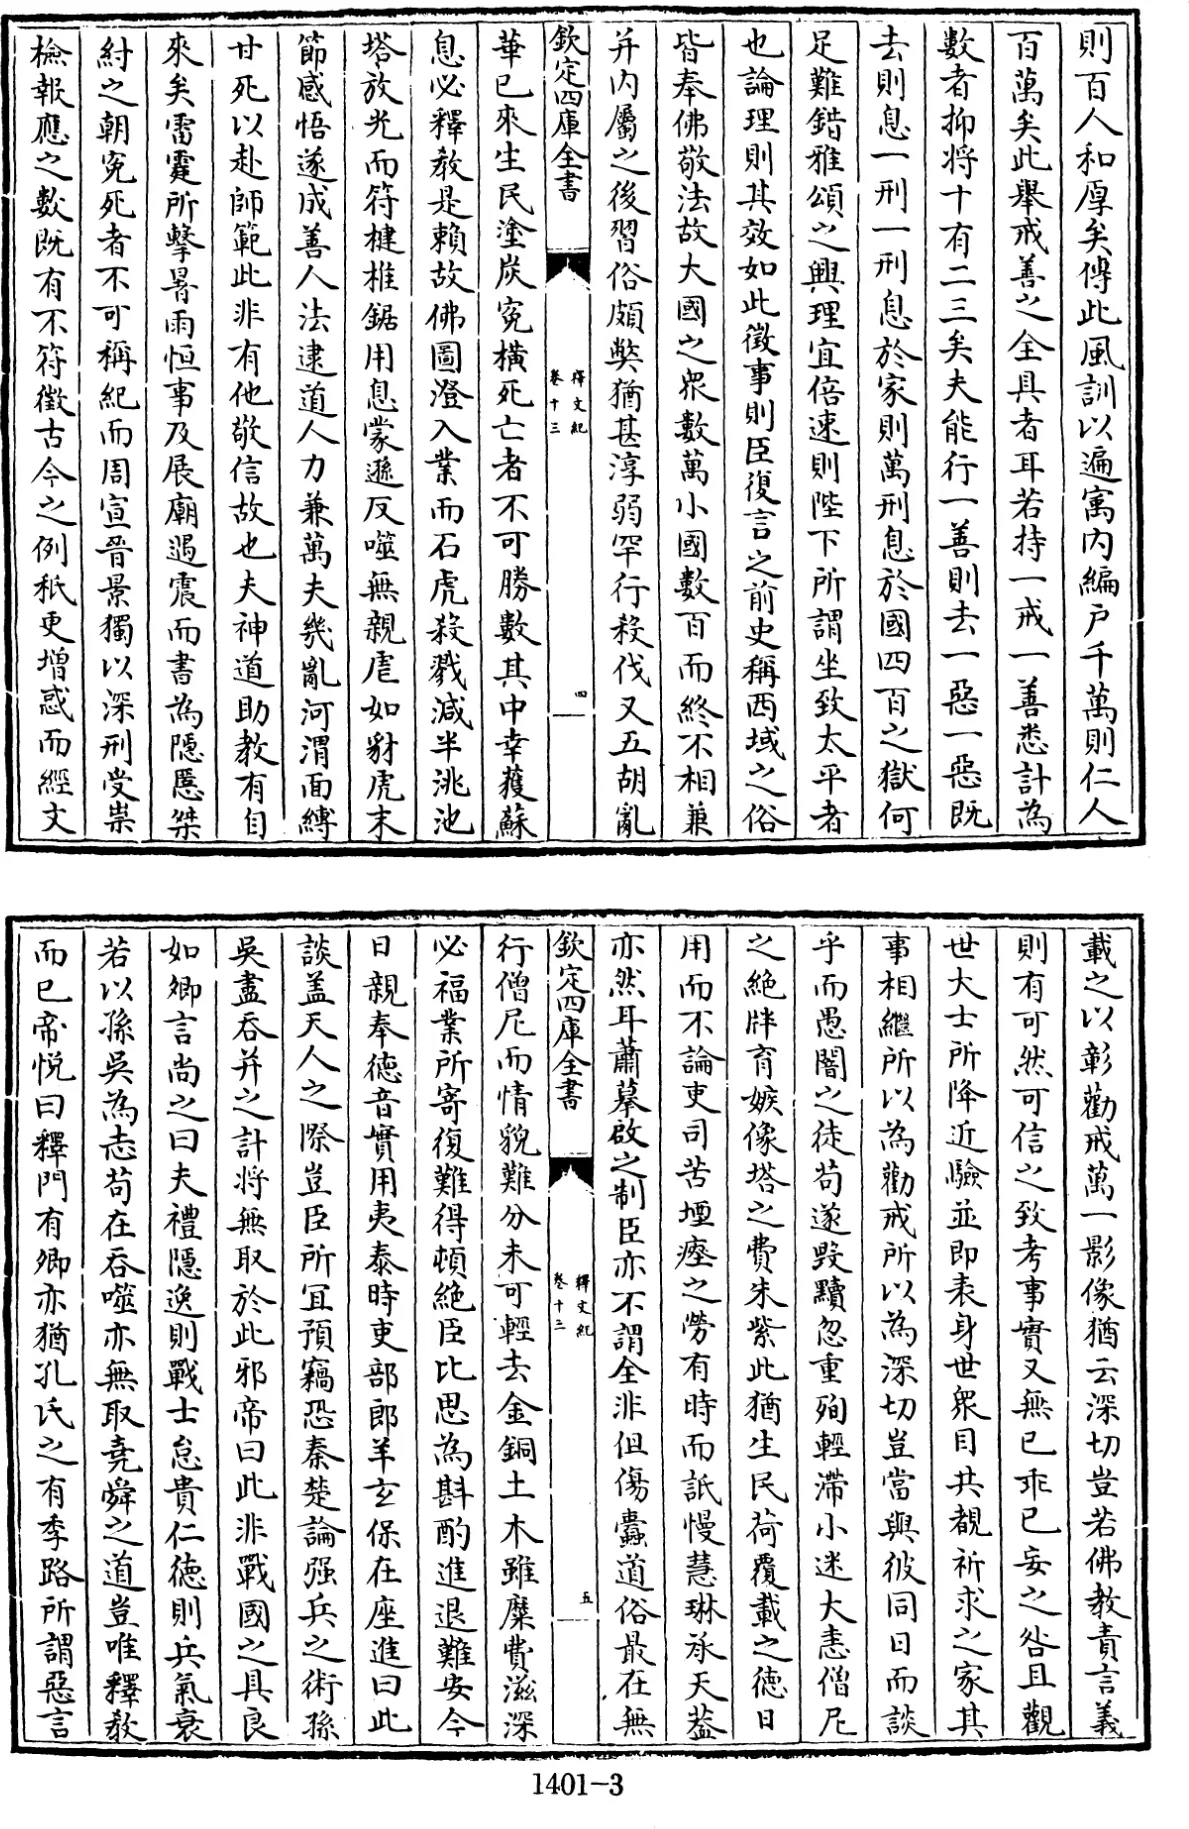 則百人和厚矣傳此風訓以遍寓内編戶千萬則仁人
百萬矣此舉戒善之全具者耳若持一戒一善悉計為
數者抑將十有二三矣夫能行一善則去一惡一惡既
去則息一刑一刑息於家則萬刑息於國四百之獄何
足難錯雅頌之興理宜倍速則陛下所謂坐致太平者
也論理則其效如此徵事則臣復言之前史稱西域之俗
皆奉佛敬法故大國之衆數萬小國數百而終不相兼
并内屬之後習俗頗弊猶甚淳弱罕行殺伐又五胡亂
欽定四庫全書
釋文紀
卷十三
四
華已來生民塗炭寃橫死亡者不可勝數其中幸獲蘇
息必釋教是賴故佛圖澄入業而石虎殺戮減半澠池
塔放光而符揵椎鋸用息蒙遜反噬無親虐如豺虎末
節感悟遂成善人法逮道人力兼萬夫幾亂河渭面縛
甘死以赴師範此非有他敬信故也夫神道助教有自
來矣雷霆所擊暑雨恒事及展廟遇震而書為隱慝桀
紂之朝寃死者不可稱紀而周宣晉景獨以深刑受祟
檢報應之數既有不符徵古今之例秖更增惑而經文
載之以彰勸戒萬一影像猶云深切豈若佛教責言義
則有可然可信之致考事實又無已乖已妄之咎且觀
世大士所降近驗並即表身世衆目共覩祈求之家其
事相繼所以為勸戒所以為深切豈當與彼同日而談
乎而愚闇之徒苟遂毀黷忽重殉輕滯小迷大恚僧尼
之絶牉育嫉像塔之費朱紫此猶生民荷覆載之德日
用而不論吏司苦堙瘞之勞有時而詆慢慧琳承天葢
亦然耳蕭摹啟之制臣亦不謂全非但傷蠹道俗最在無
欽定四庫全書
釋文紀
卷十三
五
行僧尼而情貌難分未可輕去金銅土木雖糜費滋深
必福業所寄復難得頓絶臣比思為斟酌進退難安今
日親奉德音實用夷泰時吏部郎羊玄保在座進曰此
談盖天人之際豈臣所宜預竊恐秦楚論强兵之術孫
吳盡吞并之計將無取於此邪帝曰此非戰國之具良
如卿言尚之曰夫禮隱逸則戰士怠貴仁德則兵氣衰
若以孫吳為志苟在吞噬亦無取堯舜之道豈唯釋教
而已帝悅曰釋門有卿亦猶孔氏之有季路所謂惡言
1401-3